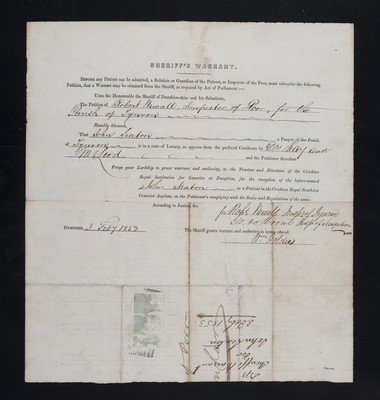 SHERIFF'S WARRANT.
BEFORE any Patient can be admitted, a Relation or Guardian of the Patient, or Inspector of the Poor, must subscribe the following
Petition, that a Warrant may be obtained from the Sheriff, as required by Act of Parliament:—
Unto the Honourable the Sheriff of Dumfries-shire and his Substitutes,
The Petition of Robert Newall Inspector of Poor, for the
Parish of Tynron
Humbly Sheweth,
That John Seaton a Pauper of the Parish
of Tynron is in a state of Lunacy, as appears from the prefixed Certificate by Drs
McLeod and the Petitioner therefore
Prays your Lordship to grant warrant and authority, to the Trustees and Directors of the Crichton
Royal Institution for Lunatics at Dumfries, for the reception of the before-named
John Seaton as a Patient in the Crichton Royal Southern
Counties Asylum, on the Petitioner's complying with the Rules and Regulations of the same.
According to Justice, &c.
for Robt Newall Inspr of Tynron
DUMFRIES, 3 Feby 1853 The Sheriff grants warrant and authority as being craved.
Sheriffs Warrant
for
John Seaton
3 Feby 1853